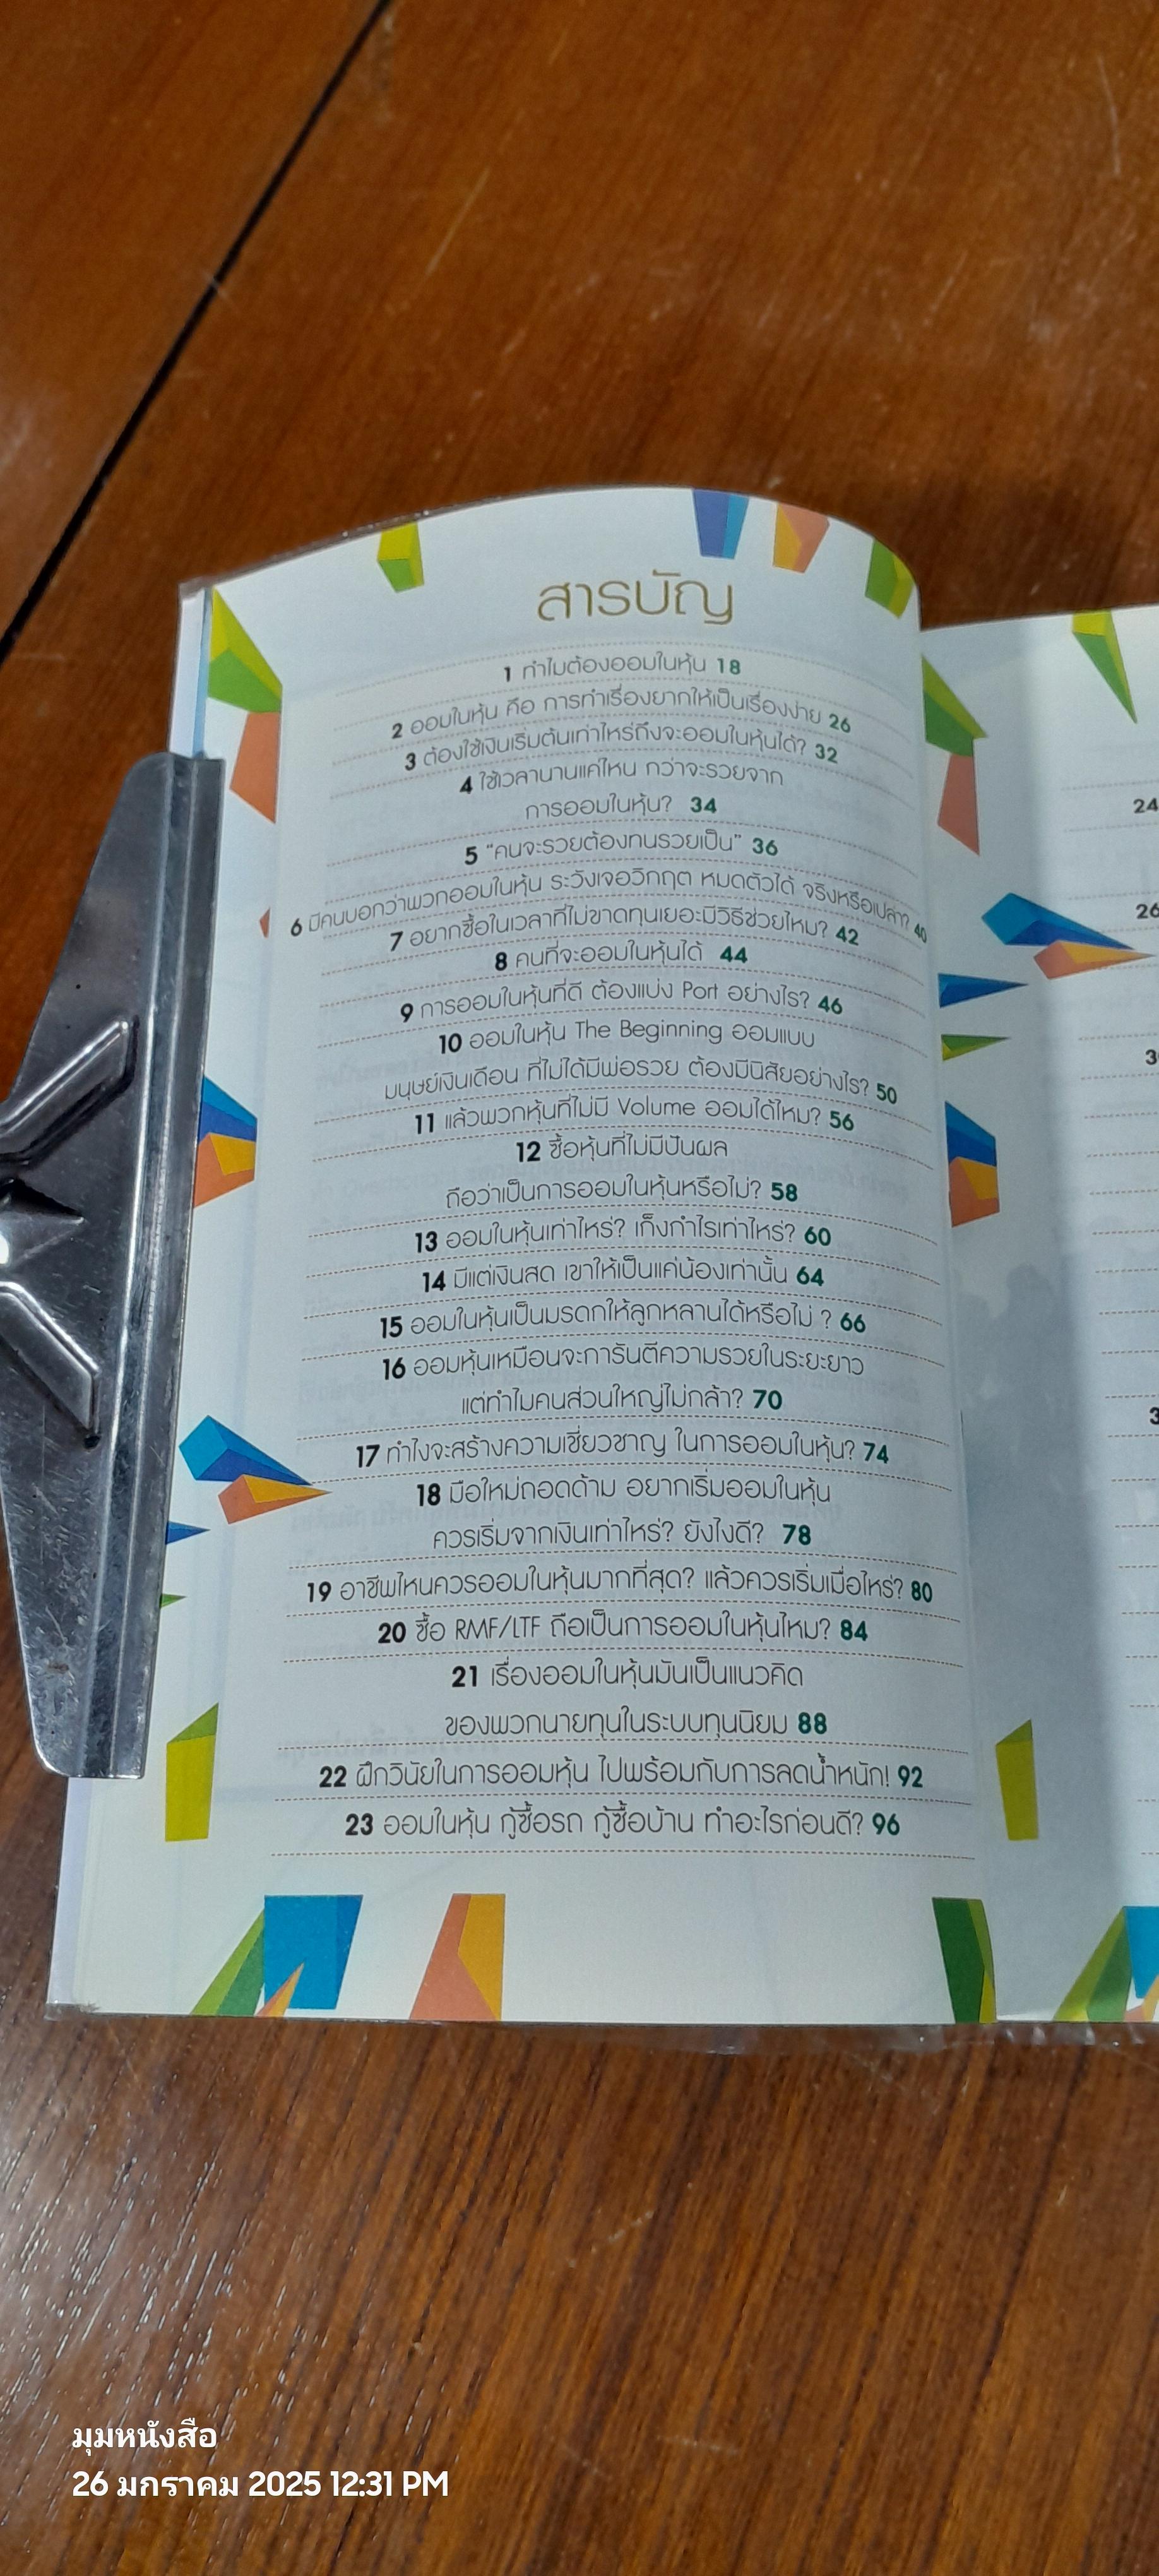 สารบัญ
1 ทำไมต้องออมในหุ้น 18
2 ออมในหุ้น คือ การทำเรื่องยากให้เป็นเรื่องง่าย 26
3 ต้องใช้เงินเริ่มต้นเท่าไหร่ถึงจะออมในหุ้นได้? 32
4 ใช้เวลานานแค่ไหน กว่าจะรวยจาก
การออมในหุ้น? 34
5 “คนจะรวยต้องทนรวยเป็น” 36
6 มีคนบอกว่าพวกออมในหุ้น ระวังเจอวิกฤต หมดตัวได้ จริงหรือเปล่า? 40
7 อยากซื้อในเวลาที่ไม่ขาดทุนเยอะมีวิธีช่วยไหม? 42
8 คนที่จะออมในหุ้นได้ 44
9 การออมในหุ้นที่ดี ต้องแบ่ง Port อย่างไร? 46
10 ออมในหุ้น The Beginning ออมแบบ
มนุษย์เงินเดือน ที่ไม่ได้มีพ่อรวย ต้องมีนิสัยอย่างไร? 50
11 แล้วพวกหุ้นที่ไม่มี Volume ออมได้ไหม? 56
12 ซื้อหุ้นที่ไม่มีปันผล
ถือว่าเป็นการออมในหุ้นหรือไม่? 58
13 ออมในหุ้นเท่าไหร่? เก็งกำไรเท่าไหร่? 60
14 มีแต่เงินสด เขาให้เป็นแค่น้องเท่านั้น 64
15 ออมในหุ้นเป็นมรดกให้ลูกหลานได้หรือไม่ ? 66
16 ออมหุ้นเหมือนจะการันตีความรวยในระยะยาว
แต่ทำไมคนส่วนใหญ่ไม่กล้า? 70
17 ทำไงจะสร้างความเชี่ยวชาญ ในการออมในหุ้น? 74
18 มือใหม่ถอดด้าม อยากเริ่มออมในหุ้น
ควรเริ่มจากเงินเท่าไหร่? ยังไงดี? 78
19 อาชีพไหนควรออมในหุ้นมากที่สุด? แล้วควรเริ่มเมื่อไหร่? 80
20 ซื้อ RMF/LTF ถือเป็นการออมในหุ้นไหม? 84
21 เรื่องออมในหุ้นมันเป็นแนวคิด
ของพวกนายทุนในระบบทุนนิยม 88
22 ฝึกวินัยในการออมหุ้น ไปพร้อมกับการลดน้ำหนัก! 92
23 ออมในหุ้น กู้ซื้อรถ กู้ซื้อบ้าน ทำอะไรก่อนดี? 96
24
26
มุมหนังสือ
26 มกราคม 2025 12:31 PM